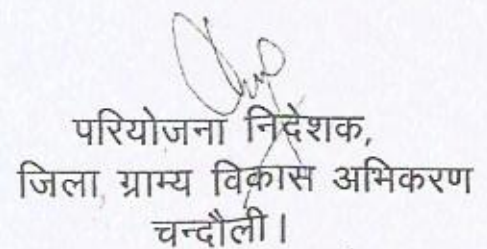 परियोजना निदेशक,
जिला ग्राम्य विकास अभिकरण
चन्दौली।